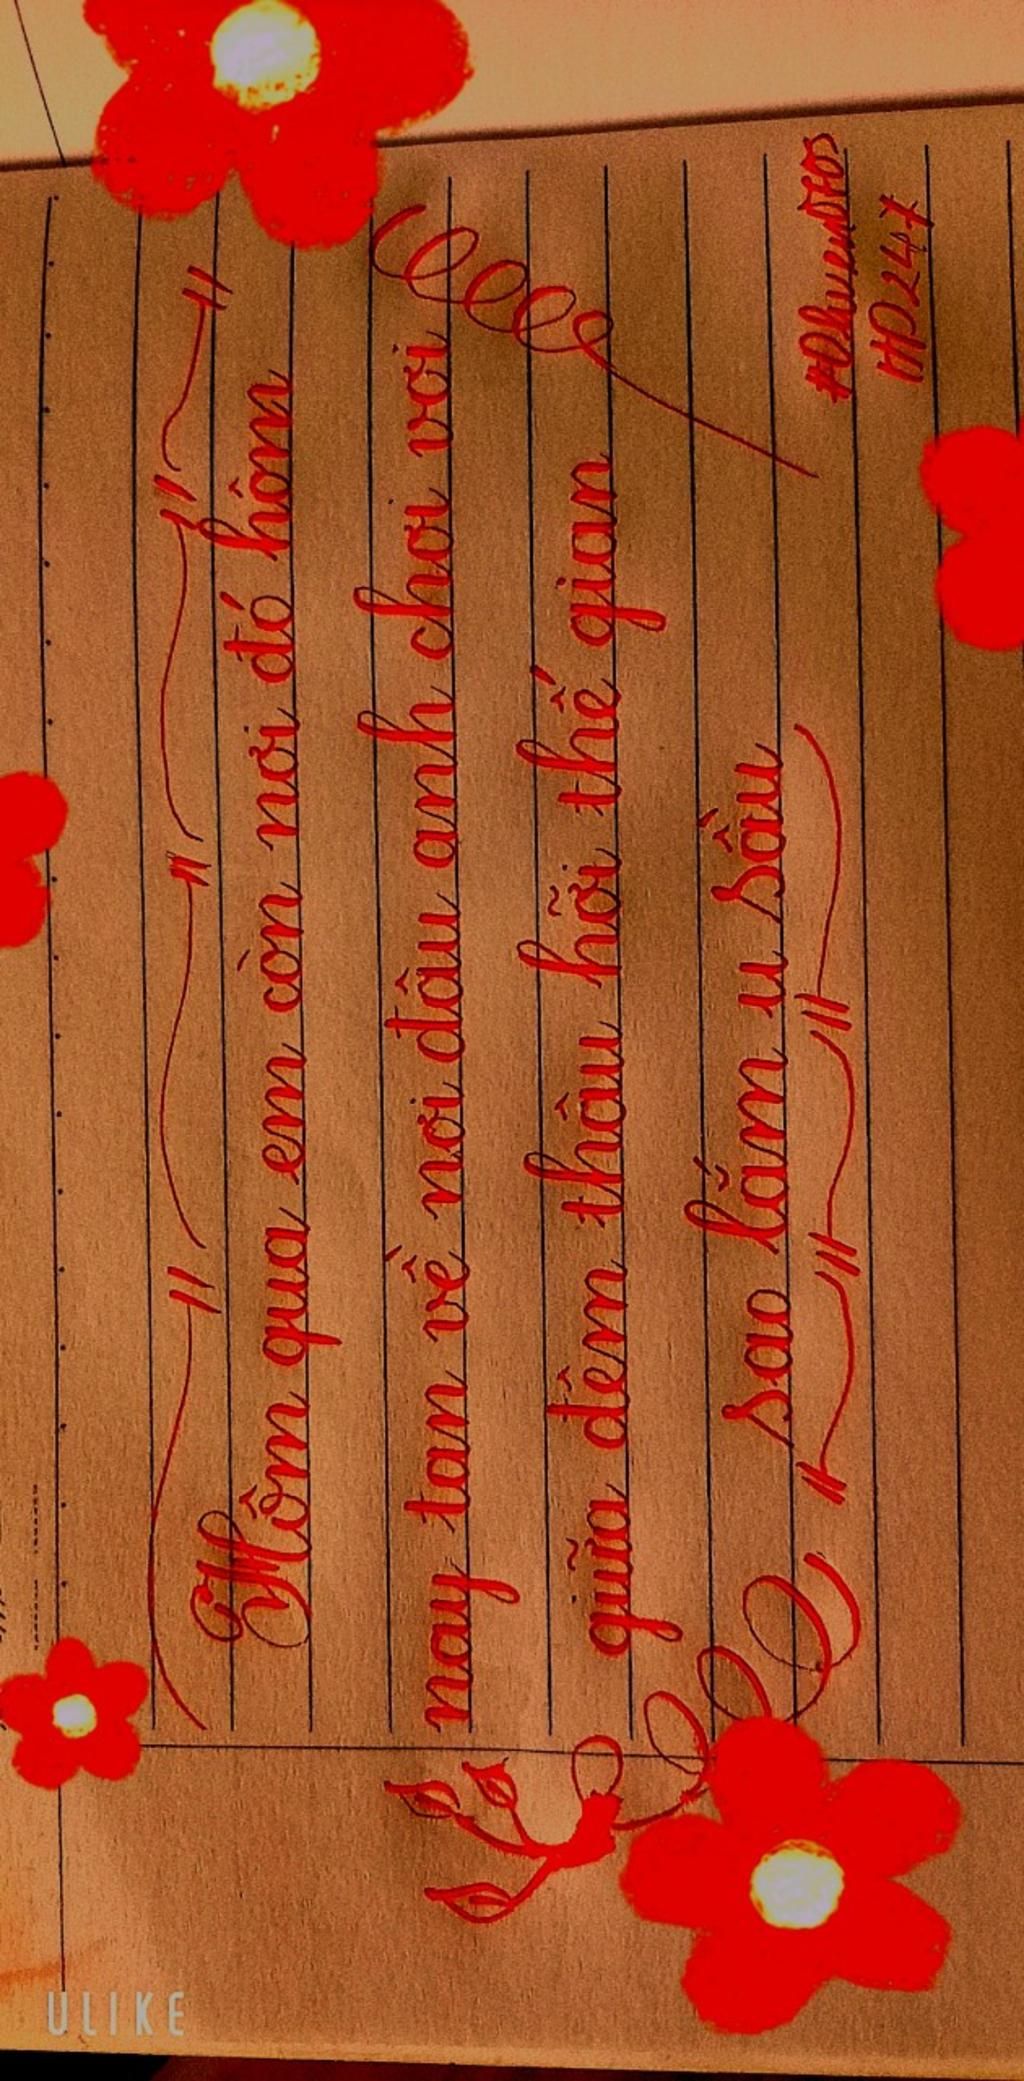 Hôm qua em còn nơi đó hôm
nay tan về nơi đâu anh chơi vơi
giữa đêm thâu hỡi thế gian
sao lắm u sầu
HP2447
ULIKE